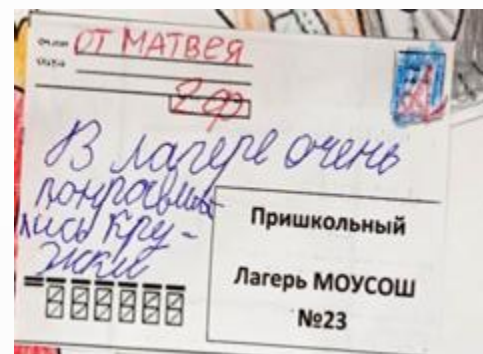 ОТ МАТВЕЯ
2ф
В лагере очень
понравил-
ись кру-
жки
Пришкольный
Лагерь МОУСОШ
№23